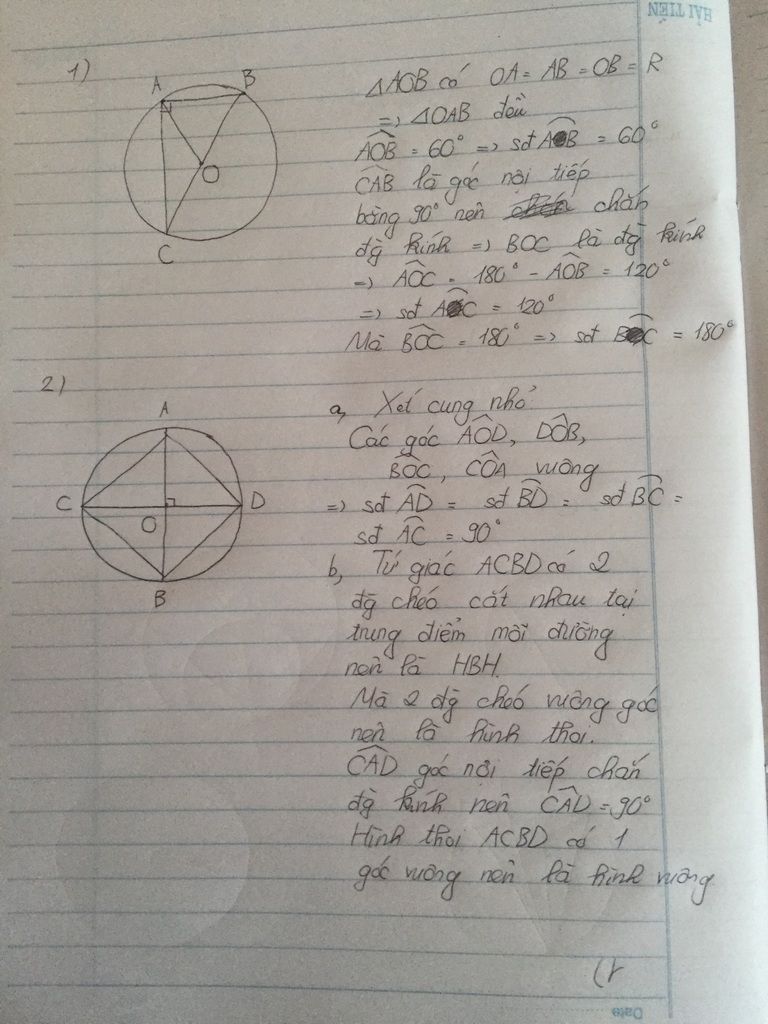 HẢI TIẾN
1)
A
B
O
C
△AOB có OA = AB = OB = R
=> △OAB đều
AÔB = 60° => sđ AB = 60°
CÂB là góc nội tiếp
bằng 90° nên chắn
đg kính => BOC là đg kính
=> AÔC = 180° - AÔB = 120°
=> sđ AC = 120°
Mà BÔC = 180° => sđ BC = 180°
2)
A
C
D
O
B
a, Xét cung nhỏ:
Các góc AÔD, DÔB,
BÔC, CÔA vuông
=> sđ AD = sđ BD = sđ BC =
sđ AC = 90°
b, Tứ giác ACBD có 2
đg chéo cắt nhau tại
trung điểm mỗi đường
nên là HBH.
Mà 2 đg chéo vuông góc
nên là hình thoi.
CÂD góc nội tiếp chắn
đg kính nên CÂD = 90°
Hình thoi ACBD có 1
góc vuông nên là hình vuông
Date